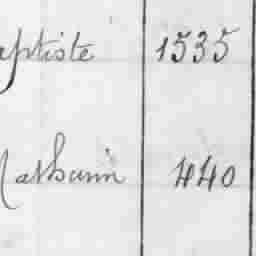 aptiste 1535
Mathurin 440